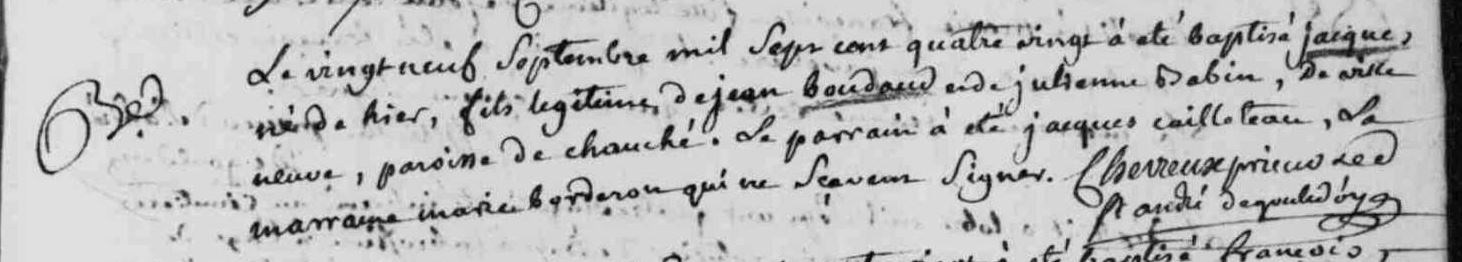 Le vingt neuf Septembre mil Sept cent quatre vingt à eté baptisé jacque,
né de hier, fils legitime, de jean boudaud et de julienne Babin, de ville
neuve, paroisse de chauché. Le parrain à eté jacques cailleteau, La
marraine marie borderon qui ne Scavent Signer. Cherreux prieur de
St andré degouledoy
à eté baptisé françois,